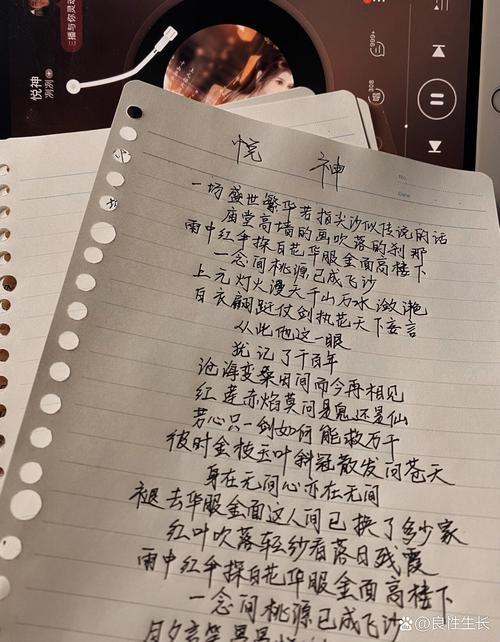 三播与你灵动
悦神
洌洌
999+
308
悦 神
No
Date
一场盛世繁华若指尖沙似传说的话
庙堂高墙的画吹落的刹那
雨中红伞探白花华服金面高楼下
一念间桃源已成飞沙
上元灯火漫天千山万水潋滟
白衣翩跹仗剑执花天下妄言
从此他这一眼
我记了千百年
沧海变桑田间而今再相见
红莲赤焰莫问是鬼还是仙
芳心只一剑如何能救万千
彼时金枝玉叶斜冠散发问苍天
身在无间心亦在无间
褪去华服金面这人间已换了多少家
红叶吹落轻纱看落日残霞
雨中红伞探白花华服金面高楼下
一念间桃源已成飞沙
百度@良性生长